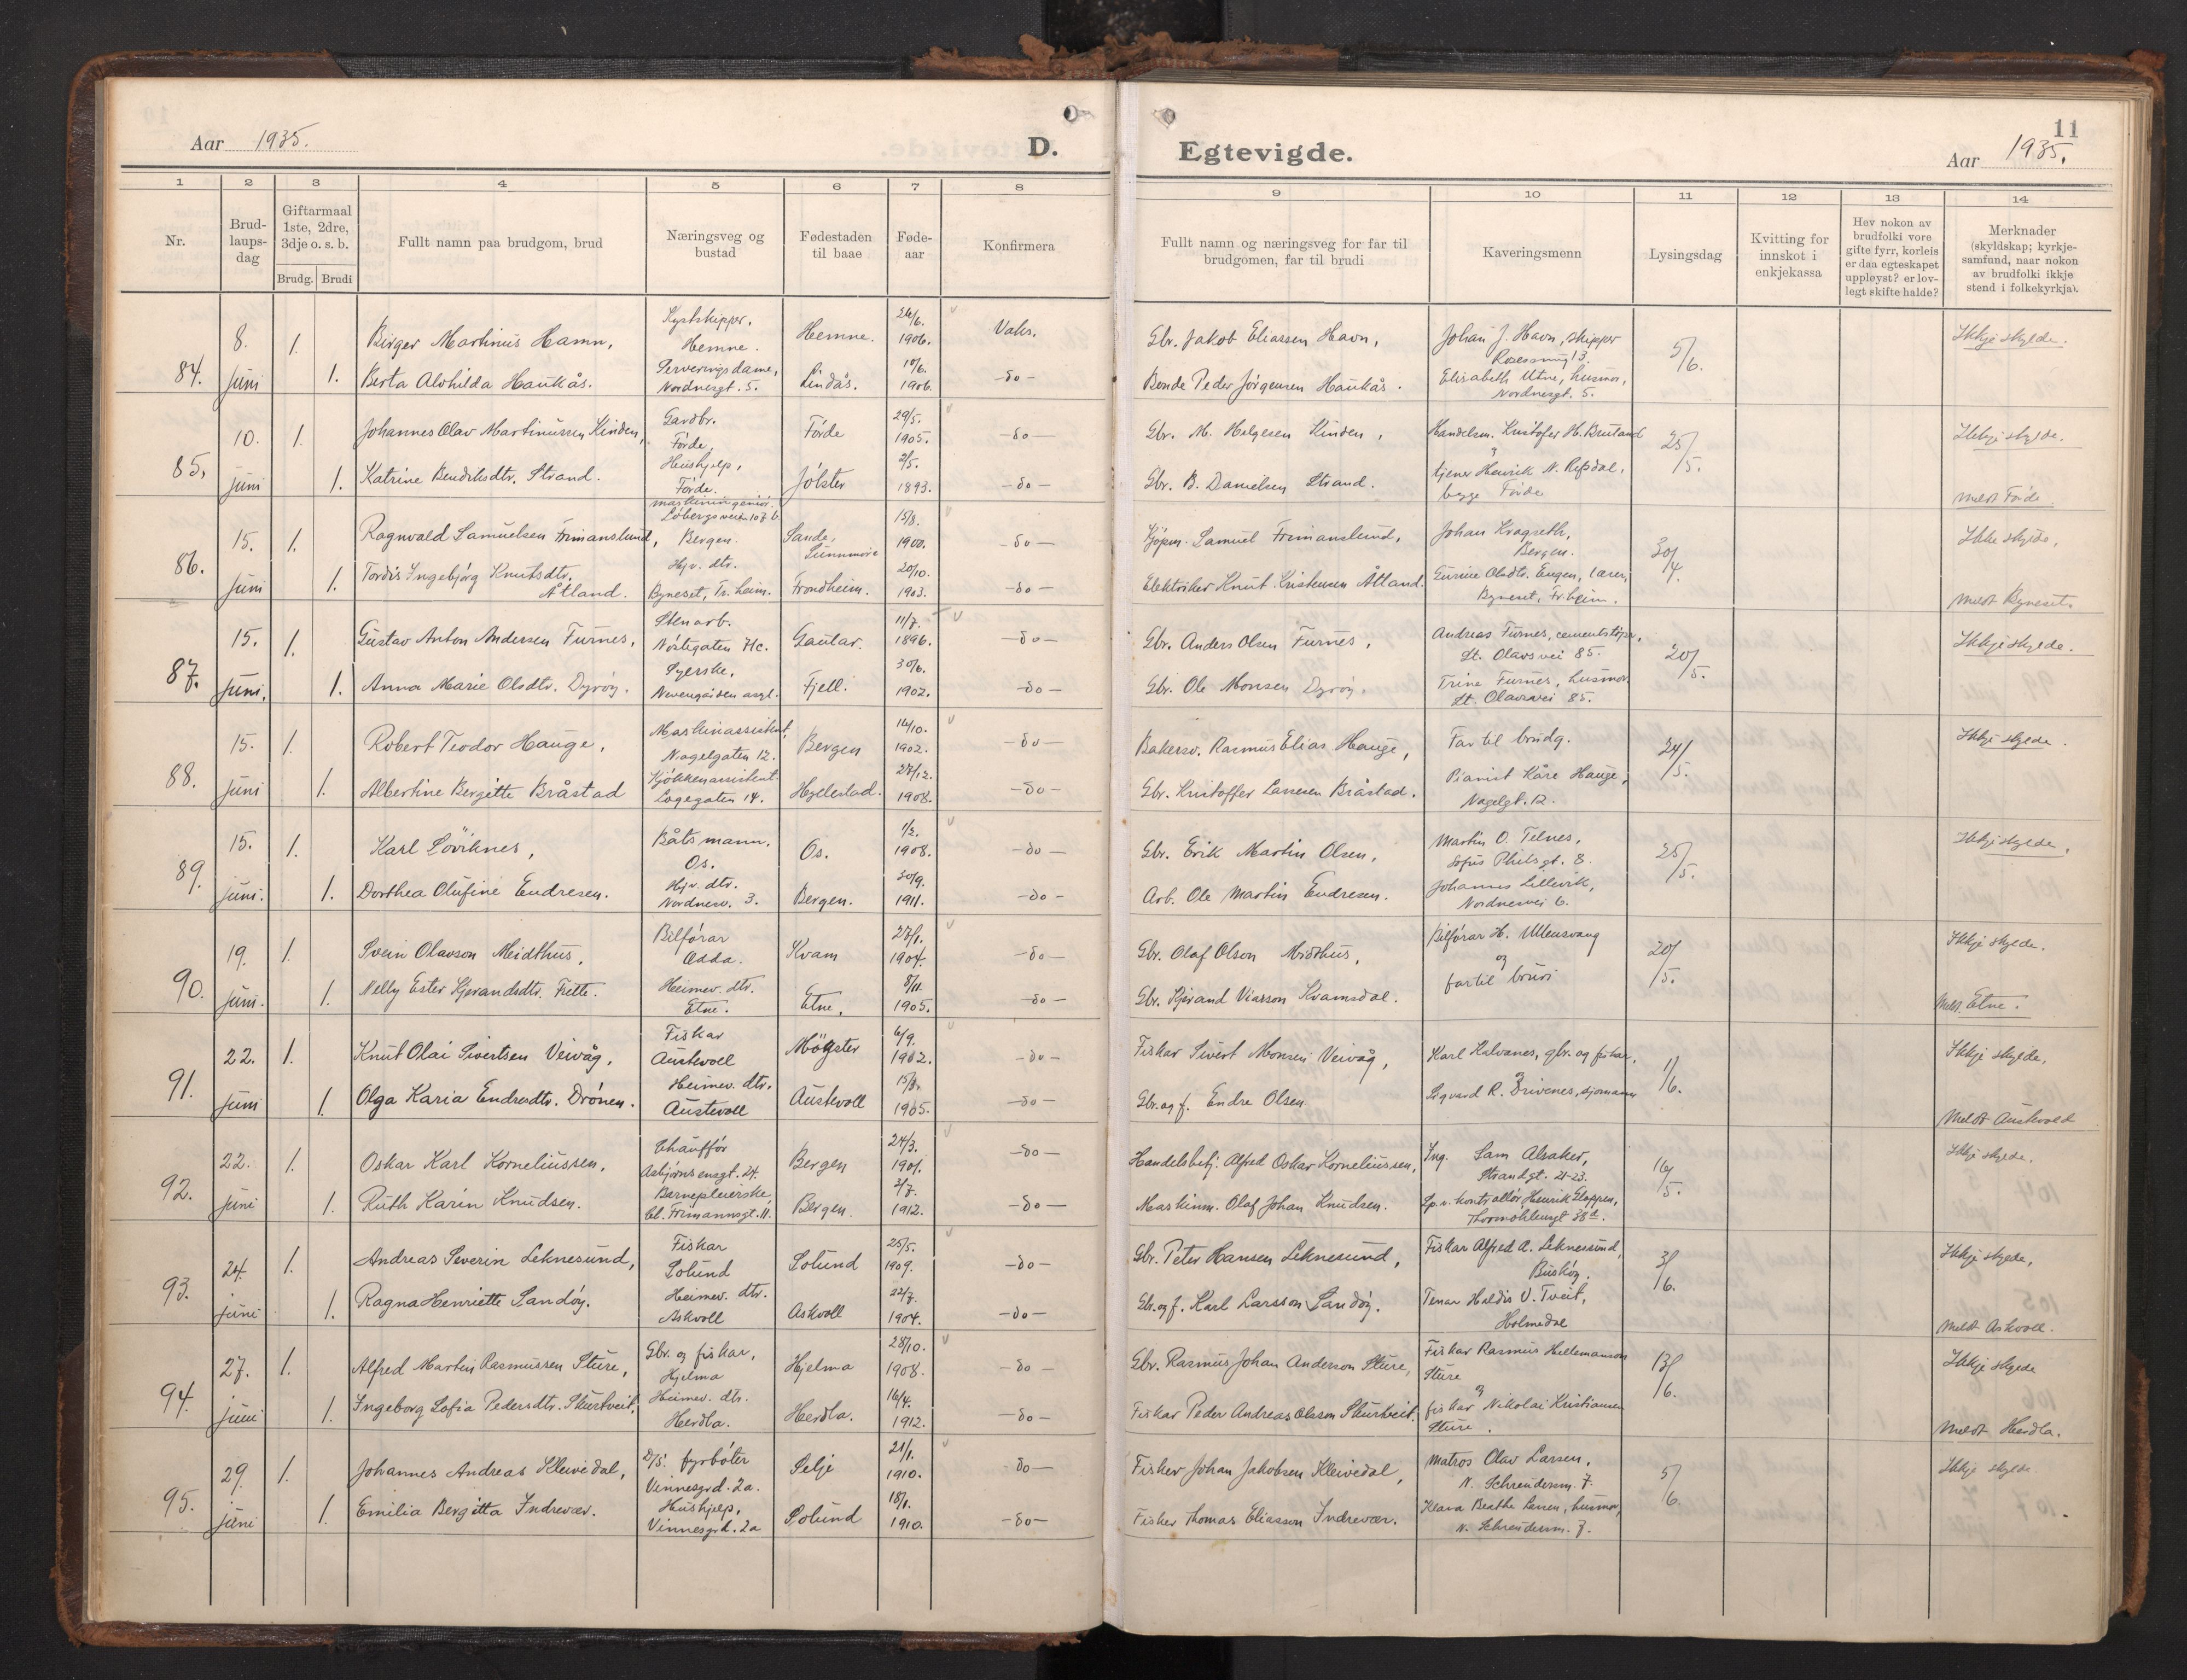 11
Aar 1935. D. Egtevigde. Aar 1935.
1 2 3 4 5 6 7 8 9 10 11 12 13 14
Nr.
Brud-
laups-
dag
Giftarmaal
1ste, 2dre,
3dje o. s. b.
Brudg. Brudi
Fullt namn paa brudgom, brud
Næringsveg og
bustad
Fødestaden
til baae
Føde-
aar
Konfirmera
Fullt namn og næringsveg for far til
brudgomen, far til brudi
Kaveringsmenn
Lysingsdag
Kvitting for
innskot i
enkjekassa
Hev nokon av
brudfolki vore
gifte fyrr, korleis
er daa egteskapet
uppløyst? er lov-
legt skifte halde?
Merknader
(skyldskap; kyrkje-
samfund, naar nokon
av brudfolki ikkje
stend i folkekyrkja).
84.
8. juni
1.
Birger Martinus Hamn,
Kystskipper,
Hemne.
Hemne.
26/6. 1906.
Vaks.
Gbr. Jakob Eliassen Havn,
Johan J. Havn, skipper
5/6.
Ikkje skylde.
1.
Berta Alvhilda Haukås.
Serveringsdame,
Nordnesgt. 5.
Lindås.
1906.
-do-
Bonde Peder Jørgensen Haukås.
Elisabeth Utne, husmor,
Nordnesgt. 5.
85.
10. juni
1.
Johannes Olav Martinussen Kinden,
Gardbr.
Förde,
Förde
29/5. 1905.
-do-
Gbr. M. Helgesen Kinden,
Handelsm. Kristofer H. Bruland
25/5.
Ikkje skylde.
1.
Katrine Bendiksdtr. Strand.
Hushjelp,
Förde.
Jölster
2/5. 1893.
-do-
Gbr. B. Danielsen Strand.
tjener Henrik N. Refsdal,
begge Förde
Meldt Förde
86.
15. juni
1.
Ragnvald Samuelsen Frimanslund,
maskiningeniör.
Löbergsveien 107 b
Bergen.
Sande,
Sunnmöre
15/8. 1900.
-do-
Kjöpm. Samuel Frimanslund,
Johan Kragseth,
Bergen.
30/4.
Ikke skylde,
1.
Tordis Ingebjörg Knutsdtr.
Åtland.
Hjv. dtr.
Byneset, Tr. heim.
Trondheim.
20/10. 1903.
-do-
Elektriker Knut Kristensen Åtland.
Gurine Olsdtr. Engen, lærer,
Byneset, Tr. heim.
Meldt Byneset.
87.
15. juni.
1.
Gustav Anton Andersen Furnes,
Stenarb.
Nöstegaten 71c.
Gaular.
11/7. 1896.
-do-
Gbr. Anders Olsen Furnes,
Andreas Furnes, cementstöper,
St. Olavsvei 85.
20/5.
Ikkje skylde.
1.
Anna Marie Olsdtr. Dyröy.
Syerske,
Nevengården asyl.
Fjell.
30/6. 1902.
-do-
Gbr. Ole Monsen Dyröy.
Trine Furnes, husmor
St. Olavsvei 85.
88.
15. juni
1.
Robert Teodor Hauge,
Maskinassistent,
Nagelgaten 12.
Bergen
14/10. 1902.
-do-
Bakersv. Rasmus Elias Hauge,
Far til brudg.
24/5.
Ikkje skylde.
1.
Albertine Bergitte Bråstad
Kjökkenassistent
Logegaten 14.
Hyllestad.
27/12. 1908.
-do-
Gbr. Kristoffer Larssen Bråstad.
Pianist Kåre Hauge,
Nagelgt. 12.
89.
15. juni.
1.
Karl Lövöknes,
Båtsmann,
Os.
Os.
1/2. 1908.
-do-
Gbr. Erik Martin Olsen,
Martin O. Telnes,
25/5.
Ikkje skylde,
1.
Dorthea Olufine Endresen.
Hjv. dtr.
Nordnesv. 3.
Bergen.
30/9. 1911.
-do-
Arb. Ole Martin Endresen.
Johannes Lillevik,
Nordnesvei 6.
90.
19. juni.
1.
Svein Olavson Meidthus,
Bilförar
Odda.
Kvam
27/1. 1904.
-do-
Gbr. Olaf Olson Midthus,
Bilförar H. Ullensvang
og
20/5.
Ikkje skylde.
1.
Nelly Ester Gjerandsdtr. Frette.
Heimev. dtr.
Etne.
Etne,
8/11. 1905.
-do-
Gbr. Gjerand Viasson Kvamsdal.
far til bruri
Meldt Etne.
91.
22. juni
1.
Knut Olai Sivertsen Veivåg,
Fiskar
Austevoll
Mögster
6/9. 1902.
-do-
Fiskar Sivert Monsen Veivåg,
Karl Kalvanes, gbr. og fiskar,
1/6.
Ikkje skylde,
1.
Olga Karia Endresdtr. Drönen.
Heimev. dtr.
Austevoll
Austevoll
15/8. 1905.
-do-
Gbr. og f. Endre Olsen
Sigvard R. Drivenes, sjömann
Meldt Austevoll
92.
22. juni
1.
Oskar Karl Korneliussen,
Chaufför
Asbjörnsensgt. 24.
Bergen
24/3. 1901.
-do-
Handelsbetj. Alfred Oskar Korneliussen,
Ing. Sam Alsaker,
Strandgt. 21-23.
16/5.
Ikkje skylde.
1.
Ruth Karin Knudsen.
Barnepleierske,
Cl. Frimannsgt. 11.
Bergen.
2/7. 1912.
-do-
Maskinm. Olaf Johan Knudsen.
Sp.v. kontrollör Henrik Gloppen,
Thormöhlensgt 38d.
93.
24. juni
1.
Andreas Severin Leknesund,
Fiskar
Solund
Solund
25/5. 1909.
-do-
Gbr. Peter Hansen Leknesund,
Fiskar Alfred A. Leknessund,
Busköy.
3/6.
Ikkje skylde,
1.
Ragna Henriette Sandöy.
Heimev. dtr.
Askvoll
Askvoll
22/7. 1904.
-do-
Gbr. og f. Karl Larsson Sandöy.
Tenar Haldis V. Tveit,
Holmedal
Meldt Askvoll.
94.
27. juni
1.
Alfred Martin Rasmussen Sture,
Gbr. og fiskar,
Hjelma
Hjelma
28/10. 1908.
-do-
Gbr. Rasmus Johan Anderson Sture,
Fiskar Rasmus Hellemanson
Sture
og
13/6.
Ikkje skylde
1.
Ingeborg Sofia Pedersdtr. Skurtveit.
Heimev. dtr.
Herdla.
Herdla.
16/4. 1912.
-do-
Fiskar Peder Andreas Olsson Skurtveit.
fiskar Nikolai Kristiansen
Sture.
Meldt Herdla.
95.
29. juni
1.
Johannes Andreas Kleivedal,
D/S. fyrböter
Vinnesgrd. 2a.
Selje
21/1. 1910.
-do-
Fisker Johan Jakobsen Kleivedal,
Matros Olav Larsen,
N. Schreudersm. 7.
5/6.
Ikkje skylde
1.
Emilia Bergitta Indrevær.
Hushjelp,
Vinnesgrd. 2a
Solund
18/1. 1910.
-do-
Fisker Thomas Eliasson Indrevær.
Klara Beathe Larsen, husmor,
N. Schreudersm. 7.